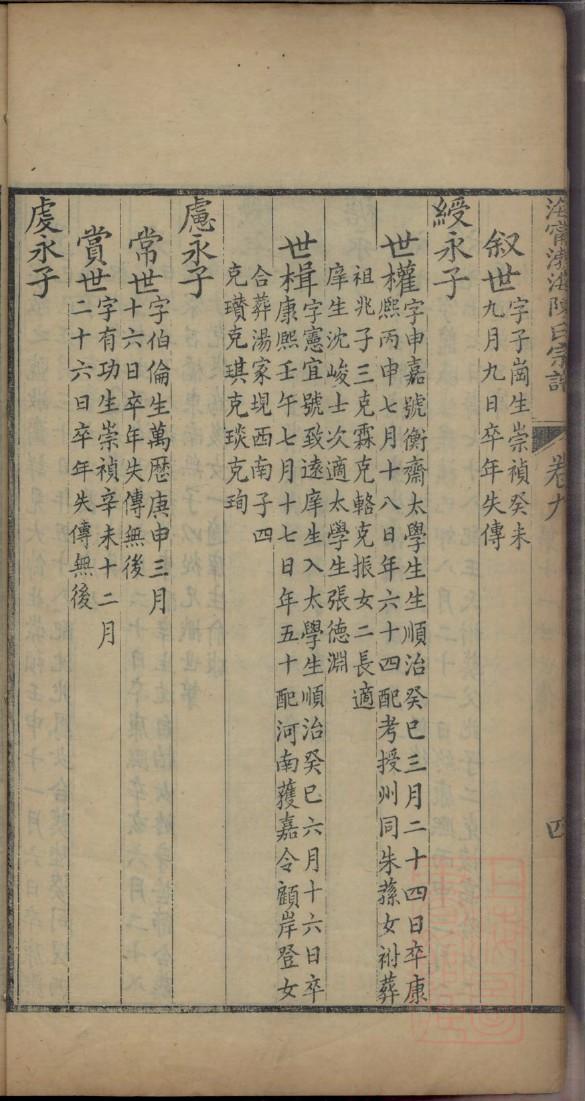 海甯渤海陳氏宗譜
卷九
四
叙世
字子崗生崇禎癸未
九月九日卒年失傳
綬永子
世權
字申嘉號衡齋太學生生順治癸巳三月二十四日卒康
熙丙申七月十八日年六十四配考授州同朱蓀女祔葬
祖兆子三克霖克輅克振女二長適
庠生沈峻士次適太學生張德淵
世楫
字憲宜號致遠庠生入太學生順治癸巳六月十六日卒
康熙壬午七月十七日年五十配河南蒦嘉令顧岸登女
合葬湯家埧西南子四
克瓚克琪克琰克珣
慮永子
常世
字伯倫生萬歷庚申三月
十六日卒年失傳無後
賞世
字有功生崇禎辛未十二月
二十六日卒年失傳無後
虔永子